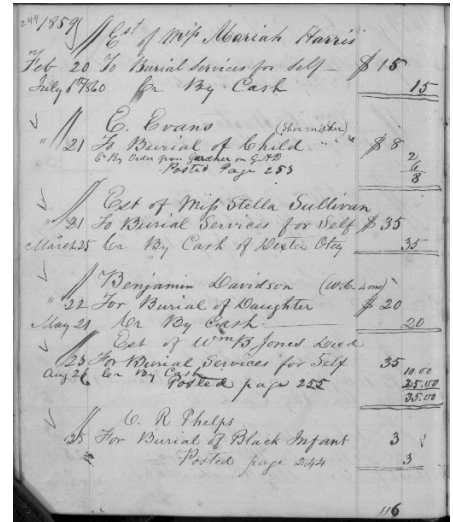 244 1859
Est of Miss Mariah Harris
Feb 20 To Burial Services for Self — $15
July 6th 1860 Cr By Cash 15
E. Evans (Shoemaker)
" 21 To Burial of Child " " " $8
Cr By Order from Gardner on G.A.D 2
6
Posted Page 253 8
Est of Miss Stella Sullivan
" 21 To Burial Services for Self $35
March 25 Cr By Cash of Dexter Otey 35
Benjamin Davidson
" 22 For Burial of Daughter $20
May 21 Cr By Cash — 20
Est of Wm B Jones Decd
" 23 For Burial Services for Self 35
Aug 26 Cr By Cash 10.00
Posted page 255 25.00
35.00
C. R Phelps
" 25 For Burial of Black Infant 3
Posted page 244 3
116